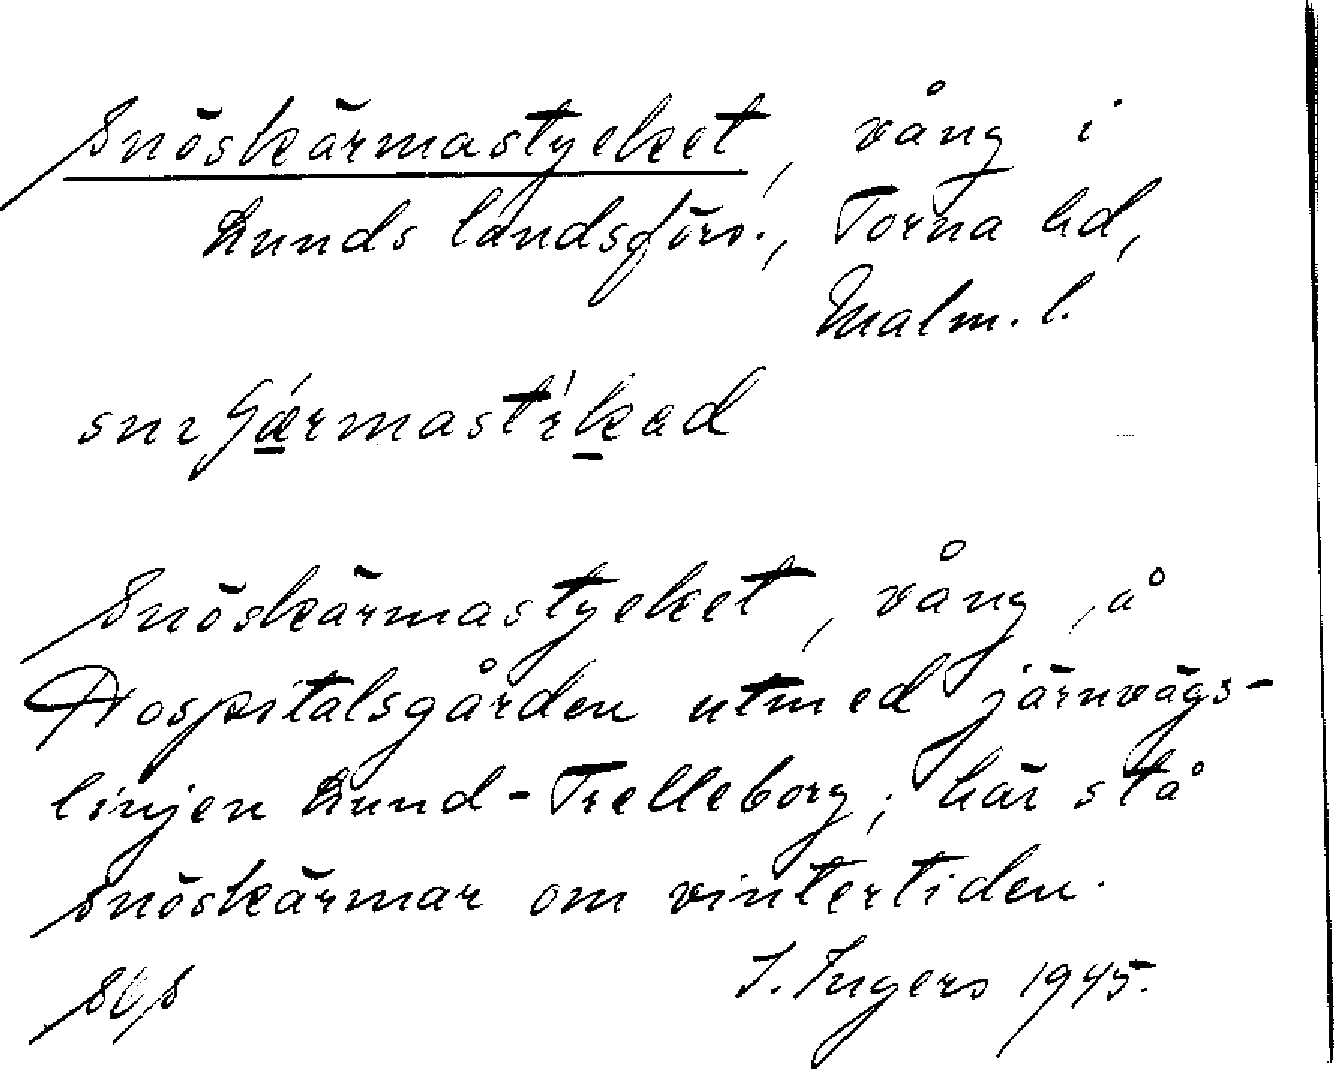 Snöskärmastycket, vång i
Lunds landsförs., Torna hd,
Malm. l.
Snöskärmastycket, vång å
Hospitalsgården utmed järnvägs-
linjen Lund-Trelleborg; här stå
snöskärmar om vintertiden.
I. Ingers 1945.